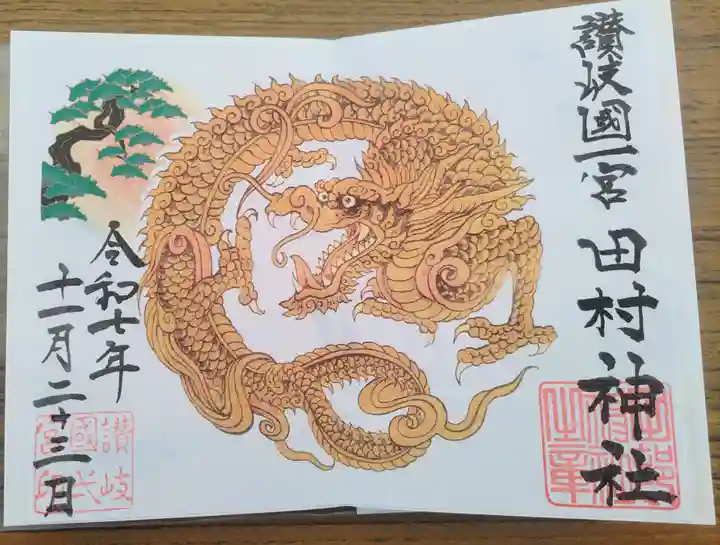 讃岐國一宮 田村神社
令和七年
十一月二十三日
讃岐
國